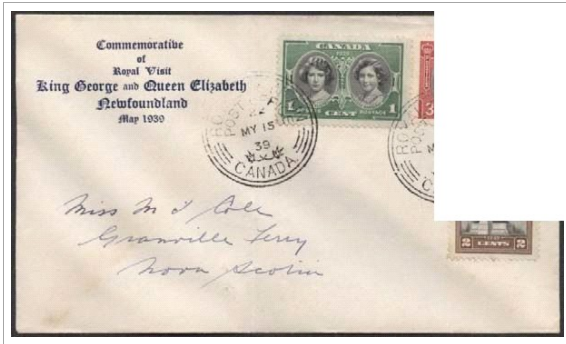 Commemorative
of
Royal Visit
King George and Queen Elizabeth
Newfoundland
May 1939
CANADA
1 CENT POSTAGE 1
3
POST
MY 15
39
CANADA
2 CENTS 2
Miss M
Granville Ferry
Nova Scotia